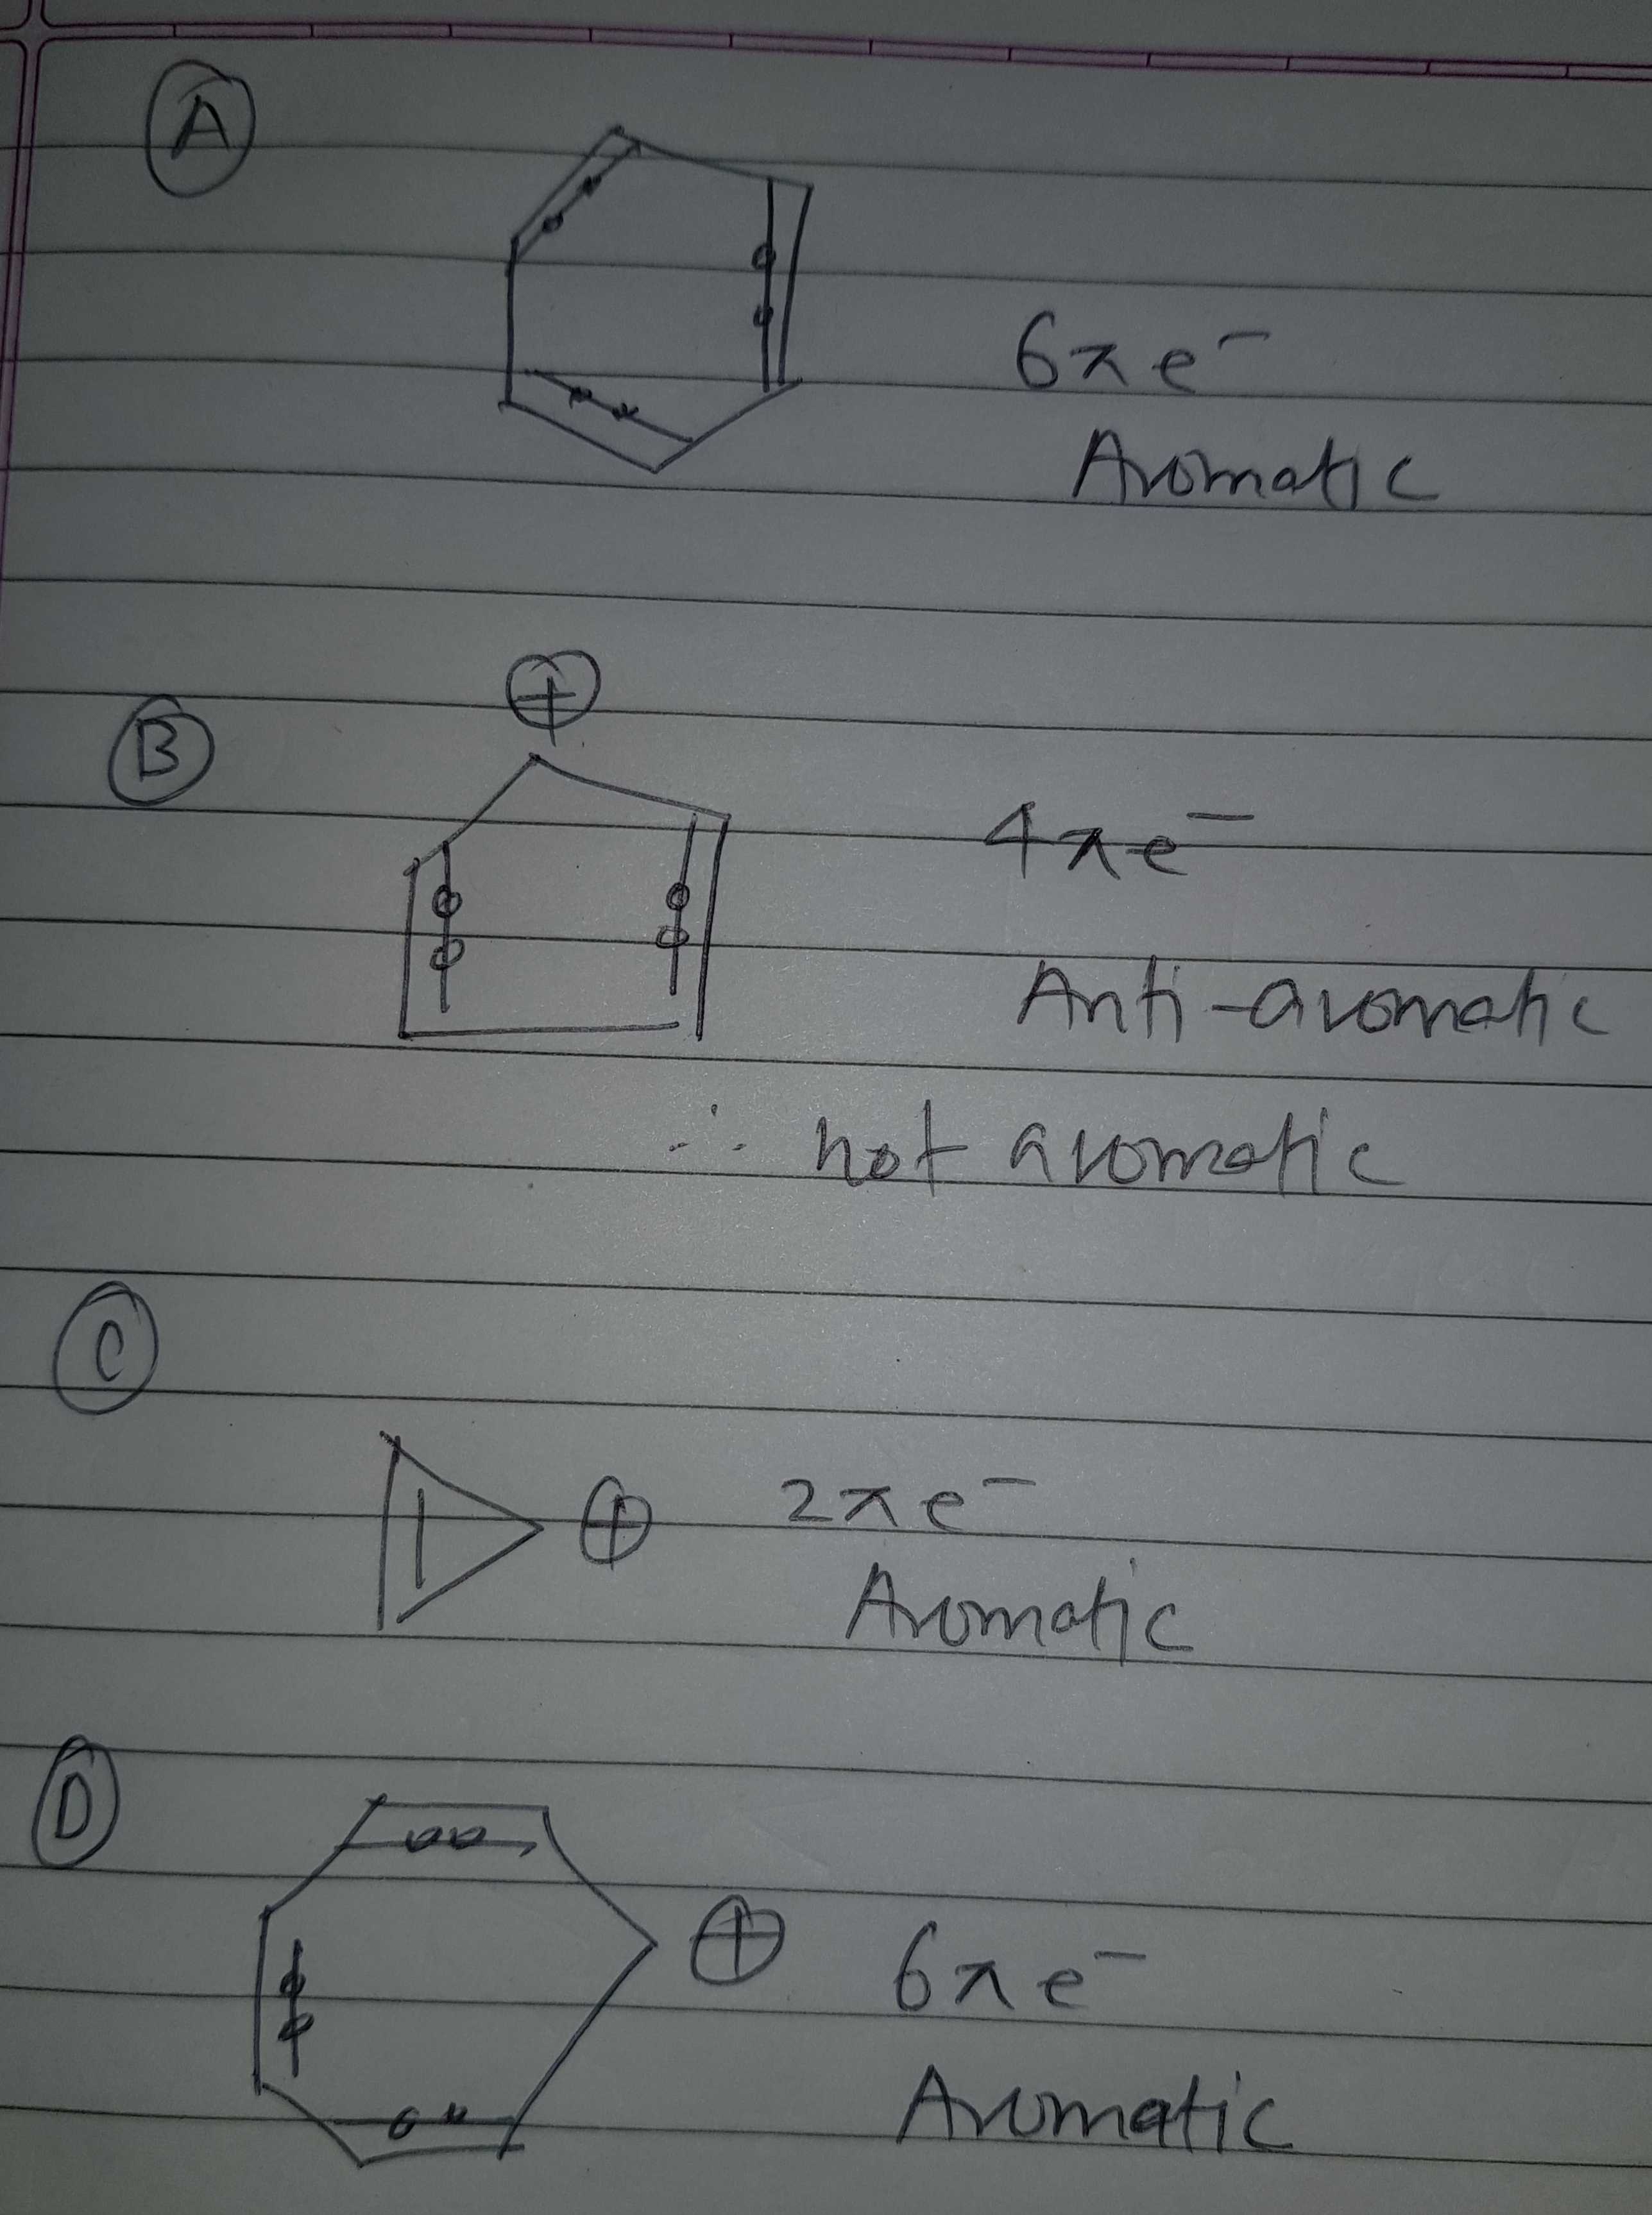 A
6πe⁻
Aromatic
⊕
B
4πe⁻
Anti-aromatic
∴ not aromatic
C
⊕ 2πe⁻
Aromatic
D
⊕ 6πe⁻
Aromatic